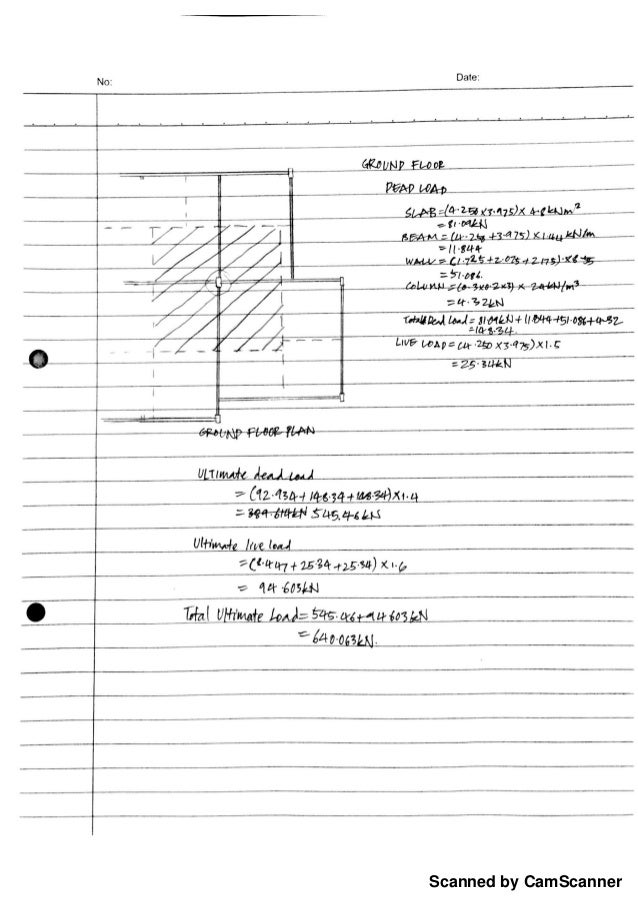 No:
Date:
GROUND FLOOR
DEAD LOAD
SLAB = (4.250 x 3.975) x 4.8kNm²
= 81.09kN
BEAM = (4.250 + 3.975) x 1.44 kN/m
= 11.844
WALL = (1.725 + 2.075 + 2.175) x 8.55
= 51.086.
COLUMN = (0.3x0.2x3) x 24kN/m³
= 4.32kN
Total Dead Load = 81.09kN + 11.844 + 51.086 + 4.32
= 148.34.
LIVE LOAD = (4.250 x 3.975) x 1.5
= 25.34kN
GROUND FLOOR PLAN
ULTImate dead load
= (92.934 + 148.34 + 148.34) x 1.4
= 389.614kN 545.46kN
Ultimate live load
= (8.447 + 25.34 + 25.34) x 1.6
= 94.603kN
Total Ultimate Load = 545.46 + 94.603kN
= 640.063kN.
Scanned by CamScanner